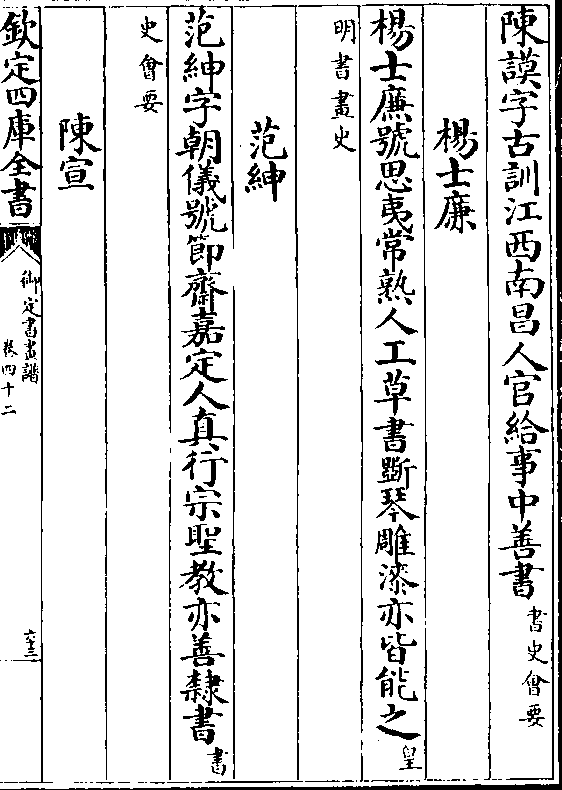 陳謨字古訓江西南昌人官給事中善書書史會要
楊士廉
楊士廉號思夷常熟人工草書斲琴雕漆亦皆能之皇
明書畫史
范紳
范紳字朝儀號節齋嘉定人真行宗聖教亦善隸書書
史會要
陳宣
欽定四庫全書
御定書畫譜
卷四十二
六十三